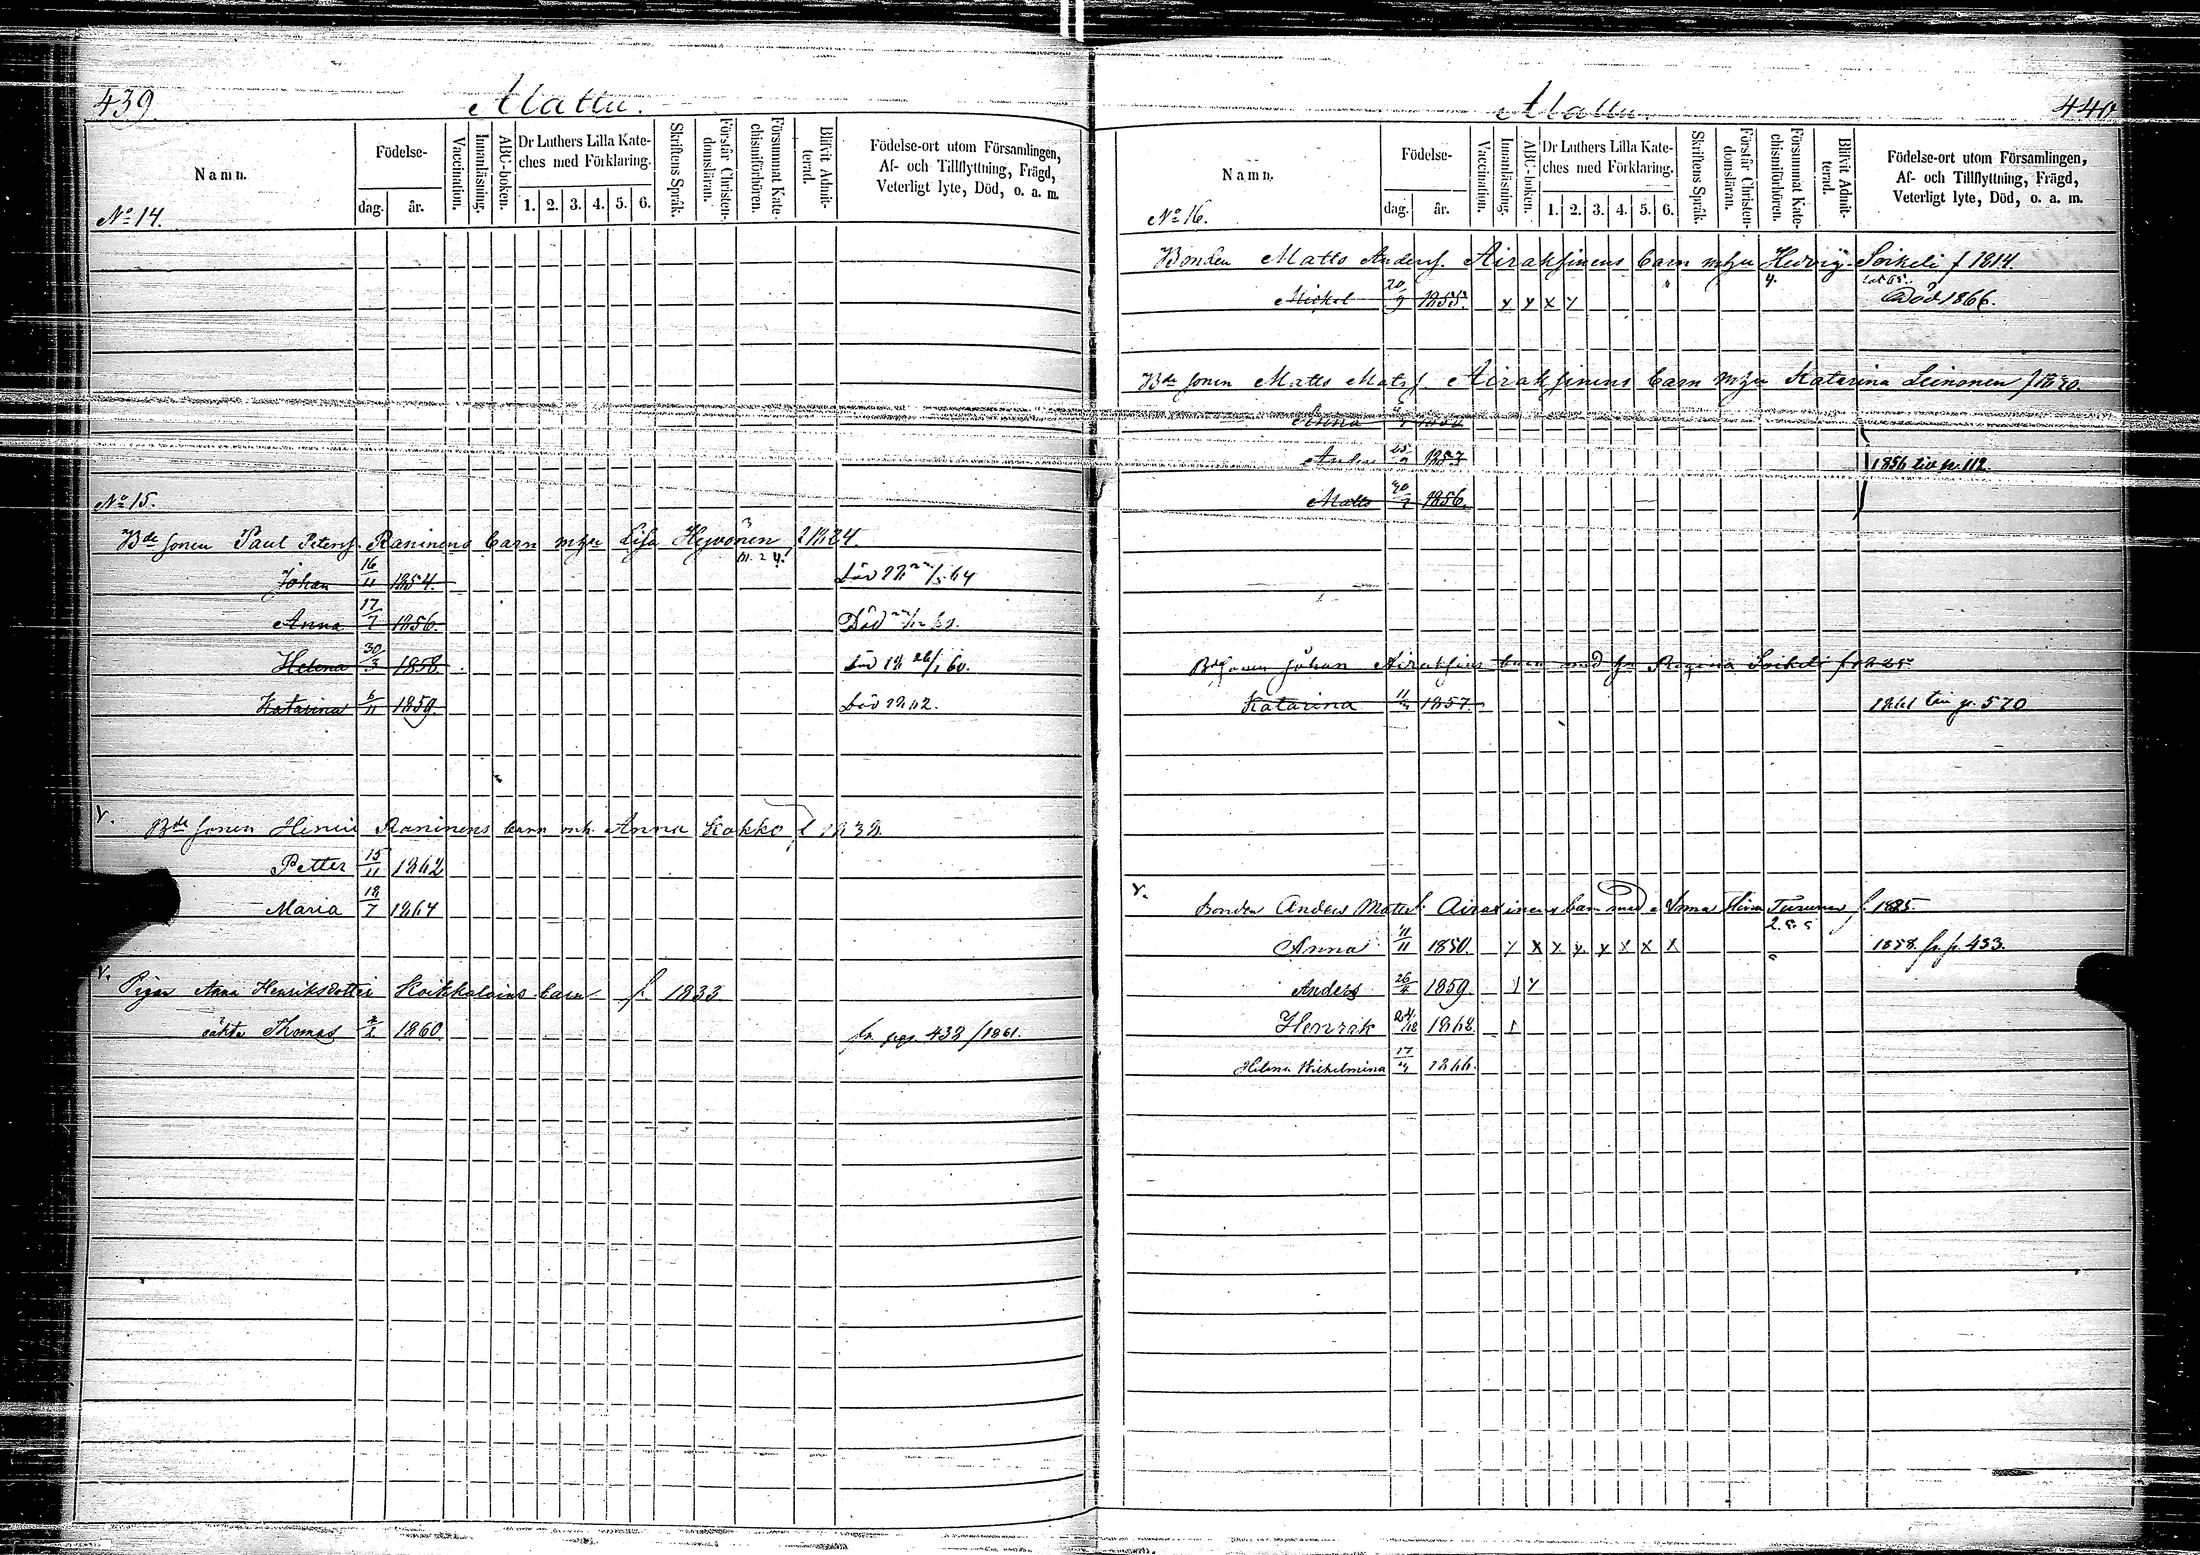 439.
Mattu.
Namn.
Födelse-
dag.
år.
Vaccination.
Innanläsning.
ABC-boken.
Dr Luthers Lilla Kate-
ches med Förklaring.
1. 2. 3. 4. 5. 6.
Skriftens Språk.
Förstår Christen-
domsläran.
Försummat Kate-
chismiförhören.
Blifvit Admit-
terad.
Födelse-ort utom Församlingen,
Af- och Tillflyttning, Frägd,
Veterligt lyte, Död, o. a. m.
No 14.
No 15.
Bde sonen Paul Petersf. Raninens barn mhu Lisa Hyvönen f 1824.
Johan 16/11 1854. Död
Anna 17/7 1856. Död
Helena 30/3 1858. Död 18 26/1 60.
Katarina 6/11 1859. Död 1862.
v.
Bde sonen Henric Raninens barn mh. Anna Kokko f 1832
Petter 15/11 1862
Maria 18/7 1864
v.
Pigan Anna Henriksdotter Koikkalains barn f. 1833
oäkta Thomas 1860 fr. pag. 432/1861.
Mattu.
440
Namn.
Födelse-
dag.
år.
Vaccination.
Innanläsning.
ABC-boken.
Dr Luthers Lilla Kate-
ches med Förklaring.
1. 2. 3. 4. 5. 6.
Skriftens Språk.
Förstår Christen-
domsläran.
Försummat Kate-
chismiförhören.
Blifvit Admit-
terad.
Födelse-ort utom Församlingen,
Af- och Tillflyttning, Frägd,
Veterligt lyte, Död, o. a. m.
No 16.
Bonden Matts Andersf. Airaksinens barn mhu Hedvig Soikeli f 1814.
Mickel 20/9 1855. x x x x Död 1866.
Bde sonen Matts Matsf. Airaksinens barn mhu Katarina Leinonen
Anna
Anders 25/9 1853
1856 till p. 112.
Matts 1856.
Bdsonen Johan Airaksins barn med hu Regina Soikeli f 1825
Katarina 1857. 1861 till p. 570
v.
Bonden Anders Mattsf. Airaxinens barn med Turunen f. 1825.
Anna 11/11 1850. x x x x x x x x 1858 fr p. 433.
Anders 26/4 1859
Henrik 24/12 1862
Helena Wilhelmina 17 1866.